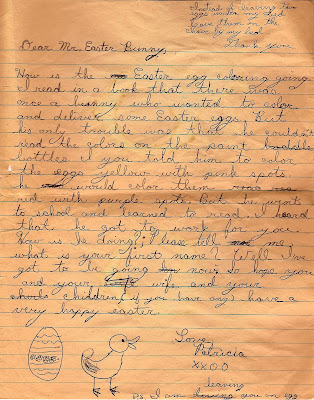 Instead of leaving the
eggs under my bed
leave them on the
chair by my bed
Thank you
Dear Mr. Easter Bunny,
How is the Easter egg coloring going
I read in a book that there was
once a bunny who wanted to color
and deliver some Easter eggs. But
his only trouble was that he couldn't
read the colors on the paint
bottles if you told him to color
the eggs yellow with pink spots
he would color them
red with purple spots. But he went
to school and learned to read. I heard
that he got to work for you.
How is he doing? Please tell me,
what is your first name? Well I've
got to be going now, so hope you
and your wife, and your
children, if you have any, have a
very happy easter.
Love,
Patricia
XXOO
leaving
PS. I am you an egg